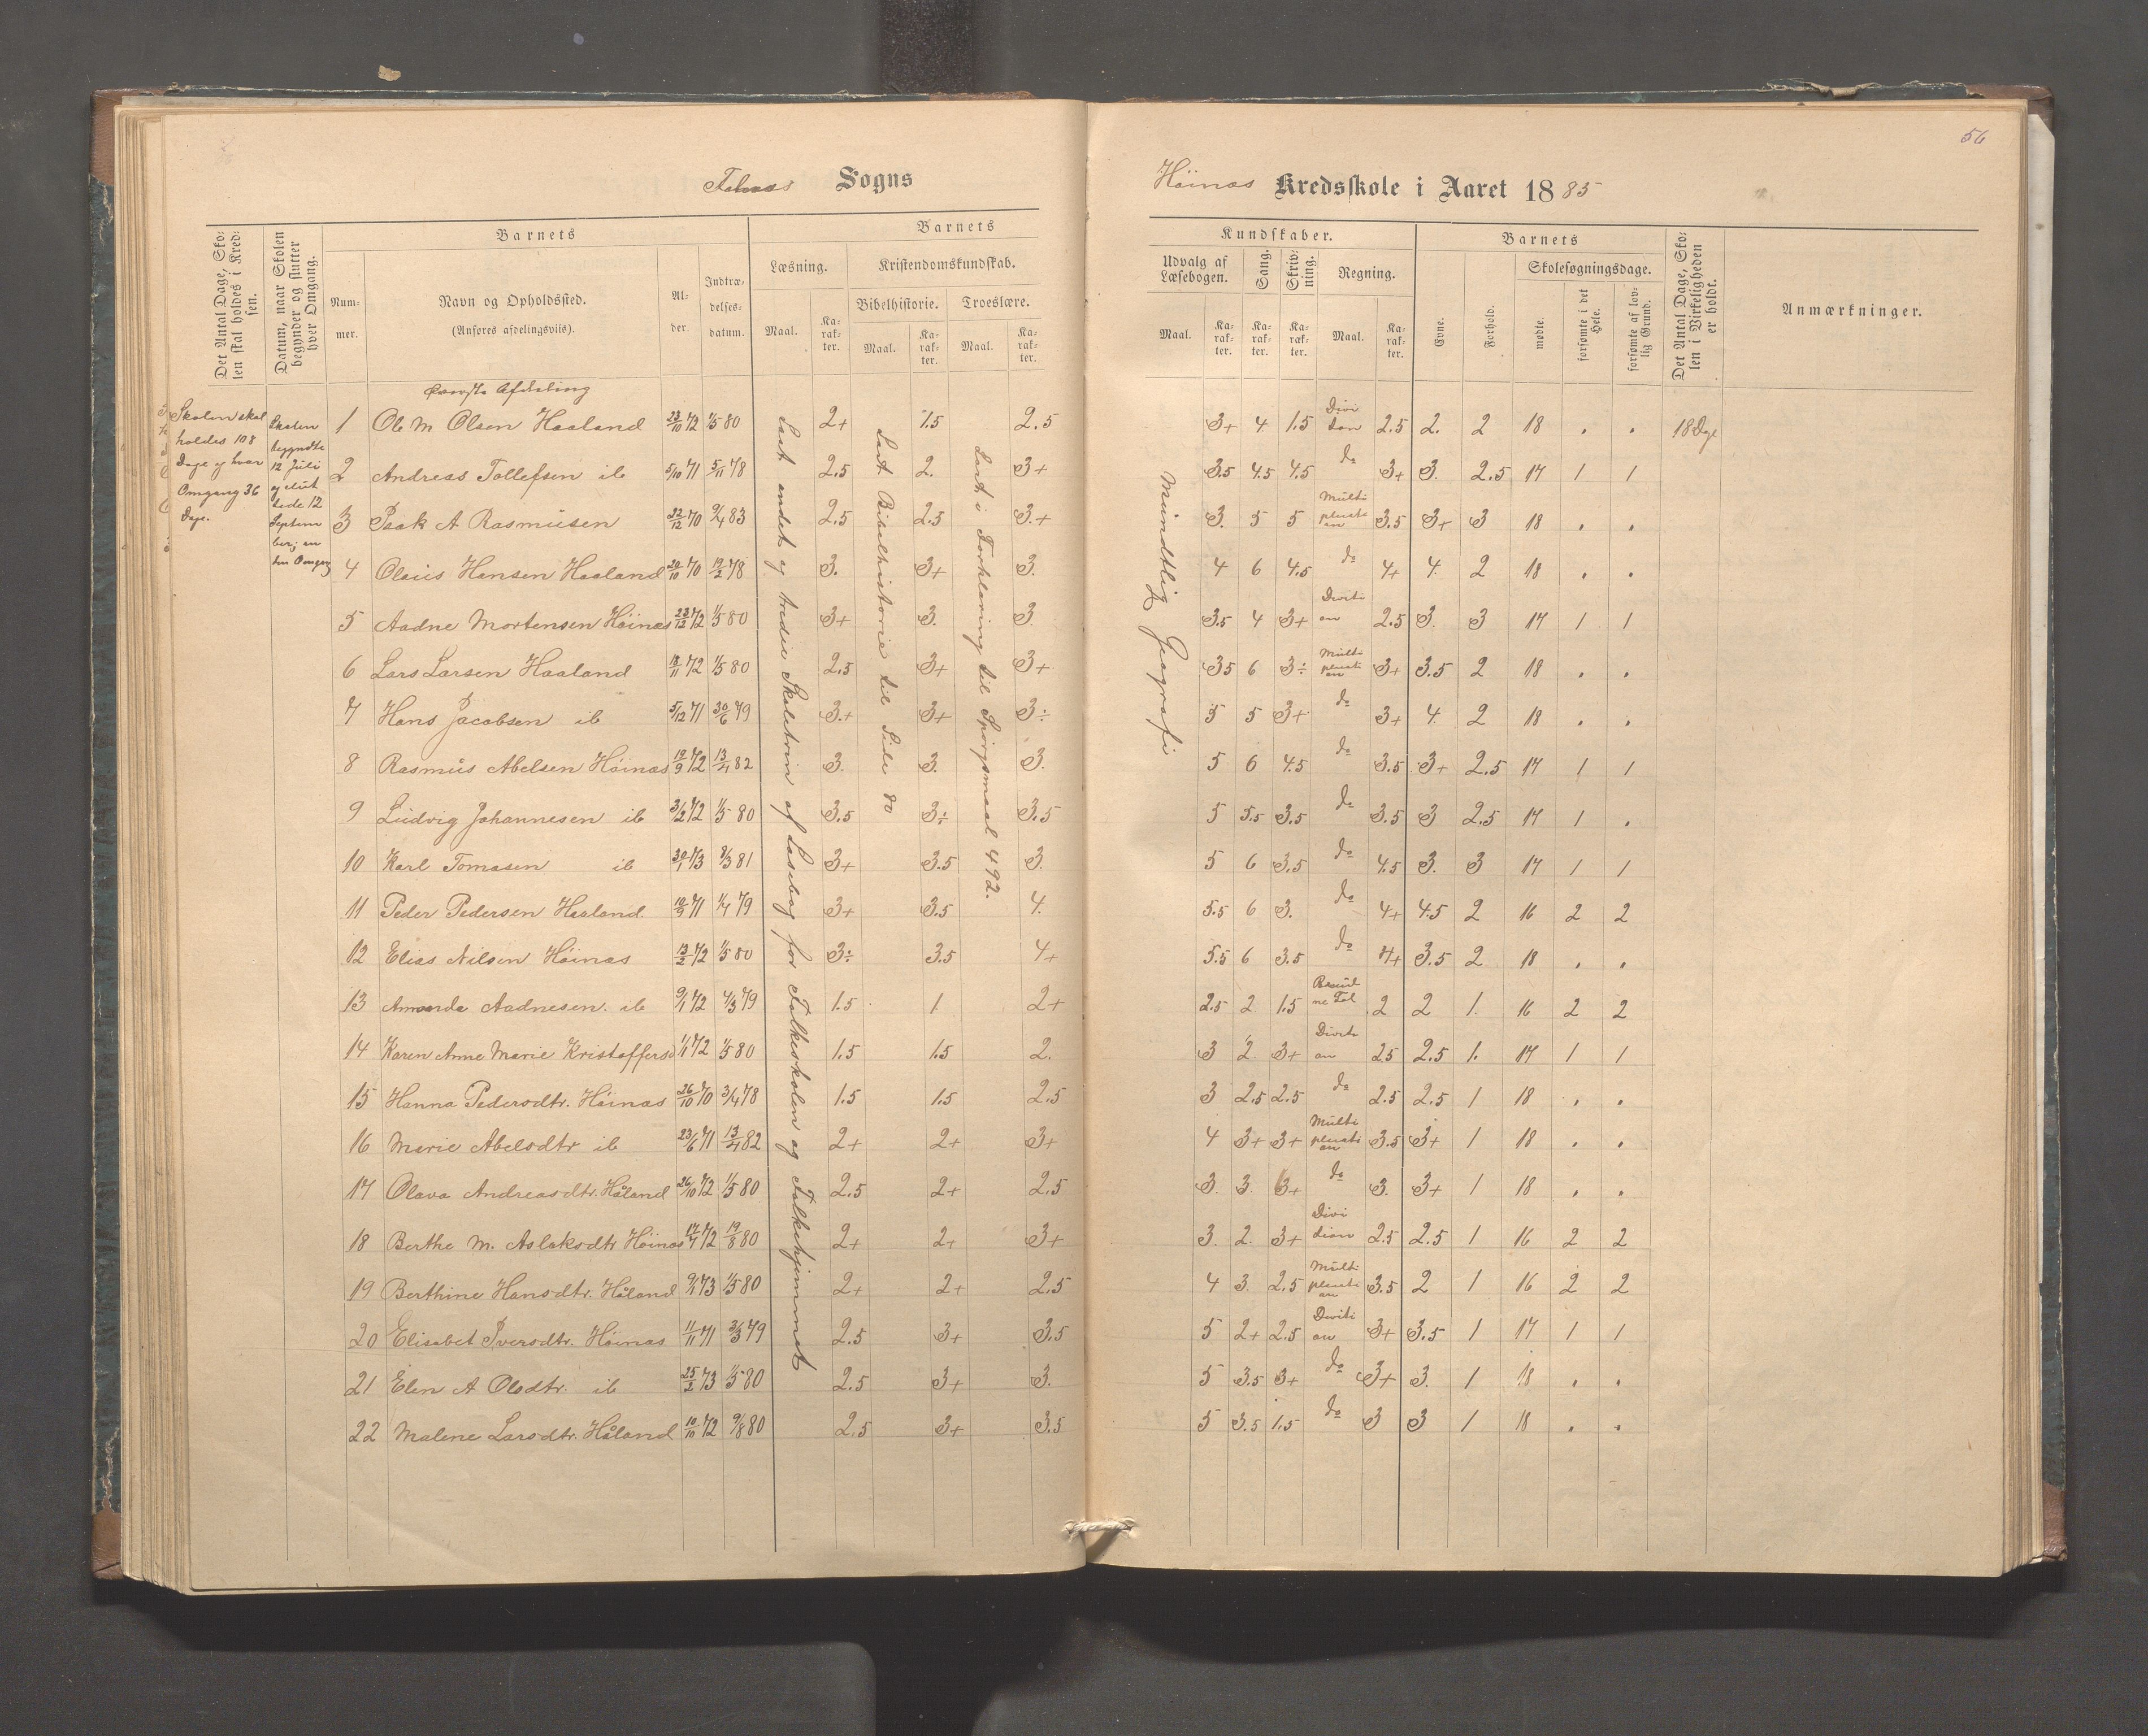 56
Sogns
Höinæs Kredsskole i Aaret 1885
Det Antal Dage, Sko-
len skal holdes i Kred-
sen.
Datum, naar Skolen
begynder og slutter
hver Omgang.
Barnets
Num-
mer.
Navn og Opholdssted.
(Anføres afdelingsviis).
Al-
der.
Indtræ-
delses-
datum.
Barnets
Læsning.
Maal.
Ka-
rak-
ter.
Kristendomskundskab.
Bibelhistorie.
Maal.
Ka-
rak-
ter.
Troeslære.
Maal.
Ka-
rak-
ter.
Kundskaber.
Udvalg af
Læsebogen.
Maal.
Ka-
rak-
ter.
Sang.
Ka-
rak-
ter.
Skriv-
ning.
Ka-
rak-
ter.
Regning.
Maal.
Ka-
rak-
ter.
Barnets
Evne.
Forhold.
Skolesøgningsdage.
mødte.
forsømte i det
Hele.
forsømte af lov-
lig Grund.
Det Antal Dage, Sko-
len i Virkeligheden
er holdt.
Anmærkninger.
Afdeling
Skolen skal
holdes 108
Dage og hver
Omgang 36
Dage.
Skolen
begyndte
12 Juli
og slut
tede 12
Septem
ber; en
Omgang
Læst andet og tredie Skoletrin af Læsebog for Folkeskolen og Folkehjemmet
Læst Bibelhistorie til Side 80
Læst i Forklaring til Spörgsmaal 492.
Mundtlig Geografi
1 Ole M Olsen Haaland 23/10 72 1/5 80 2+ 1.5 2.5 3+ 4 1.5 Divi sion 2.5 2. 2 18 . . 18 Dge
2 Andreas Tollefsen ib 5/10 71 5/11 78 2.5 2. 3+ 3.5 4.5 4.5 do 3+ 3. 2.5 17 1 1
3 Isak A Rasmüsen 22/12 70 9/4 83 2.5 2.5 3.+ 3. 5 5 3.5 3+ 3 18 . .
4 Olaüs Hansen Haaland 20/10 70 19/2 78 3. 3+ 3. 4 6 4.5 do 4+ 4. 2 18 . .
5 Aadne Mortensen Höinæs 23/12 72 1/5 80 3+ 3. 3. 3.5 4 3+ 2.5 3. 3 17 1 1
6 Lars Larsen Haaland 18/11 72 1/5 80 2.5 3+ 3+ 3.5 6 3÷ 3+ 3.5 2 18 . .
7 Hans Jacobsen ib 5/12 71 30/6 79 3.+ 3+ 3÷ 5 5 3+ do 3+ 4. 2 18 . .
8 Rasmüs Abelsen Höinæs 19/9 72 13/4 82 3. 3. 3. 5 6 4.5 do 3.5 3+ 2.5 17 1 1
9 Lüdvig Johannesen ib 3/2 72 1/5 80 3.5 3÷ 3.5 5 5.5 3.5 do 3.5 3 2.5 17 1 .
10 Karl Tomasen ib 30/1 73 8/3 81 3+ 3.5 3. 5 6 3.5 do 4.5 3. 3 17 1 1
11 Peder Pedersen Haaland 10/9 71 1/4 79 3+ 3.5 4. 5.5 6 3. do 4+ 4.5 2 16 2 2
12 Elias Nilsen Höinæs 12/2 72 1/5 80 3÷ 3.5 4+ 5.5 6 3.5 do 4+ 3.5 2 18 . .
13 Amanda Aadnesen ib 9/1 72 4/3 79 1.5 1 2+ 2.5 2 1.5 2 2 1. 16 2 2
14 Karen Anne Marie Kristoffersd 1/1 72 1/5 80 1.5 1.5 2. 3 2. 3+ 2.5 2.5 1. 17 1 1
15 Hanna Pedersdtr. Höinæs 26/10 70 3/4 78 1.5 1.5 2.5 3 2.5 2.5 do 2.5 2.5 1 18 . .
16 Marie Abelsdtr ib 23/6 71 13/4 82 2+ 2+ 3+ 4 3+ 3+ 3.5 3+ 1 18 . .
17 Olava Andreasdtr. Håland 26/10 72 1/5 80 2.5 2+ 2.5 3. 3. 3+ do 3. 3+ 1 18 . .
18 Berthe M. Aslaksdtr Höinæs 17/7 72 19/8 80 2+ 2+ 3+ 3. 2. 3+ Divi sion 2.5 2.5 1 16 2 2
19 Berthine Hansdtr. Håland 9/4 73 1/5 80 2+ 2+ 2.5 4 3. 2.5 3.5 2 1 16 2 2
20 Elisabet Iversdtr. Höinæs 11/11 71 3/3 79 2.5 3+ 3.5 5 2+ 2.5 3+ 3.5 1 17 1 1
21 Elen A Olsdtr. ib 25/2 73 1/5 80 2.5 3+ 3. 5 3.5 3+ do 3+ 3. 1 18 . .
22 Malene Larsdtr. Håland 10/10 72 9/8 80 2.5 3+ 3.5 5 3.5 1.5 do 3 3 1 18 . .